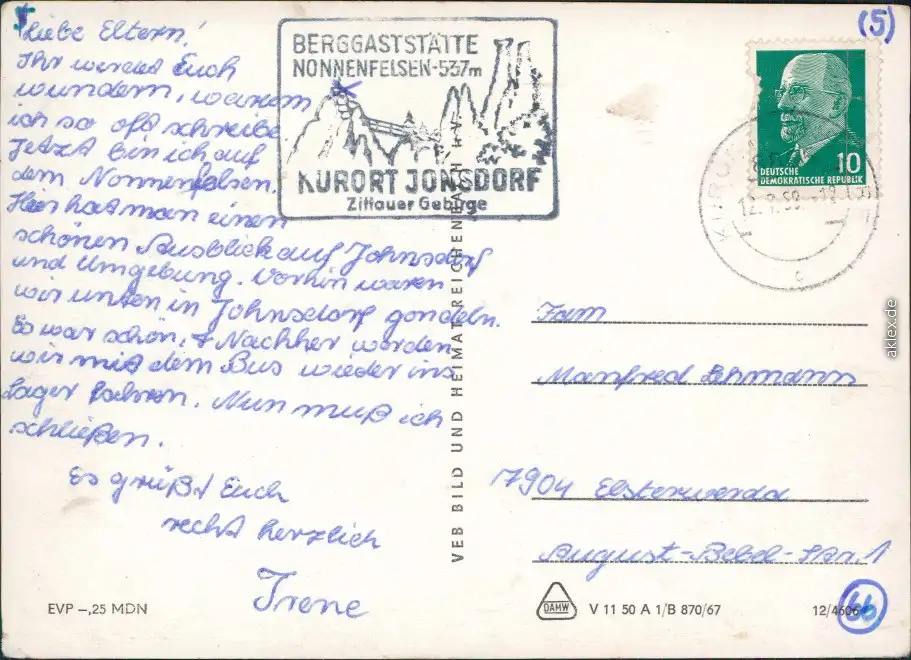 (5)
Liebe Eltern!
Ihr werdet Euch
wundern, warum
ich so oft schreibe
Jetzt bin ich auf
dem Nonnenfelsen.
Hier hat man einen
schönen Ausblick auf Johnsdorf
und Umgebung. Vorhin waren
wir unten in Johnsdorf gondeln.
Es war schön. Nachher werden
wir mit dem Bus wieder ins
Lager fahren. Nun muß ich
schließen.
Es grüßt Euch
recht herzlich
Irene
BERGGASTSTÄTTE
NONNENFELSEN-537m
KURORT JONSDORF
Zittauer Gebirge
10
DEUTSCHE
DEMOKRATISCHE REPUBLIK
c
Fam
Manfred Lehmann
7904 Elsterwerda
August-Bebel-Str. 1
VEB BILD UND HEIMAT REICHENBACH i. V.
EVP –,25 MDN
DAMW
V 11 50 A 1/B 870/67
12/4606
66
aklex.de